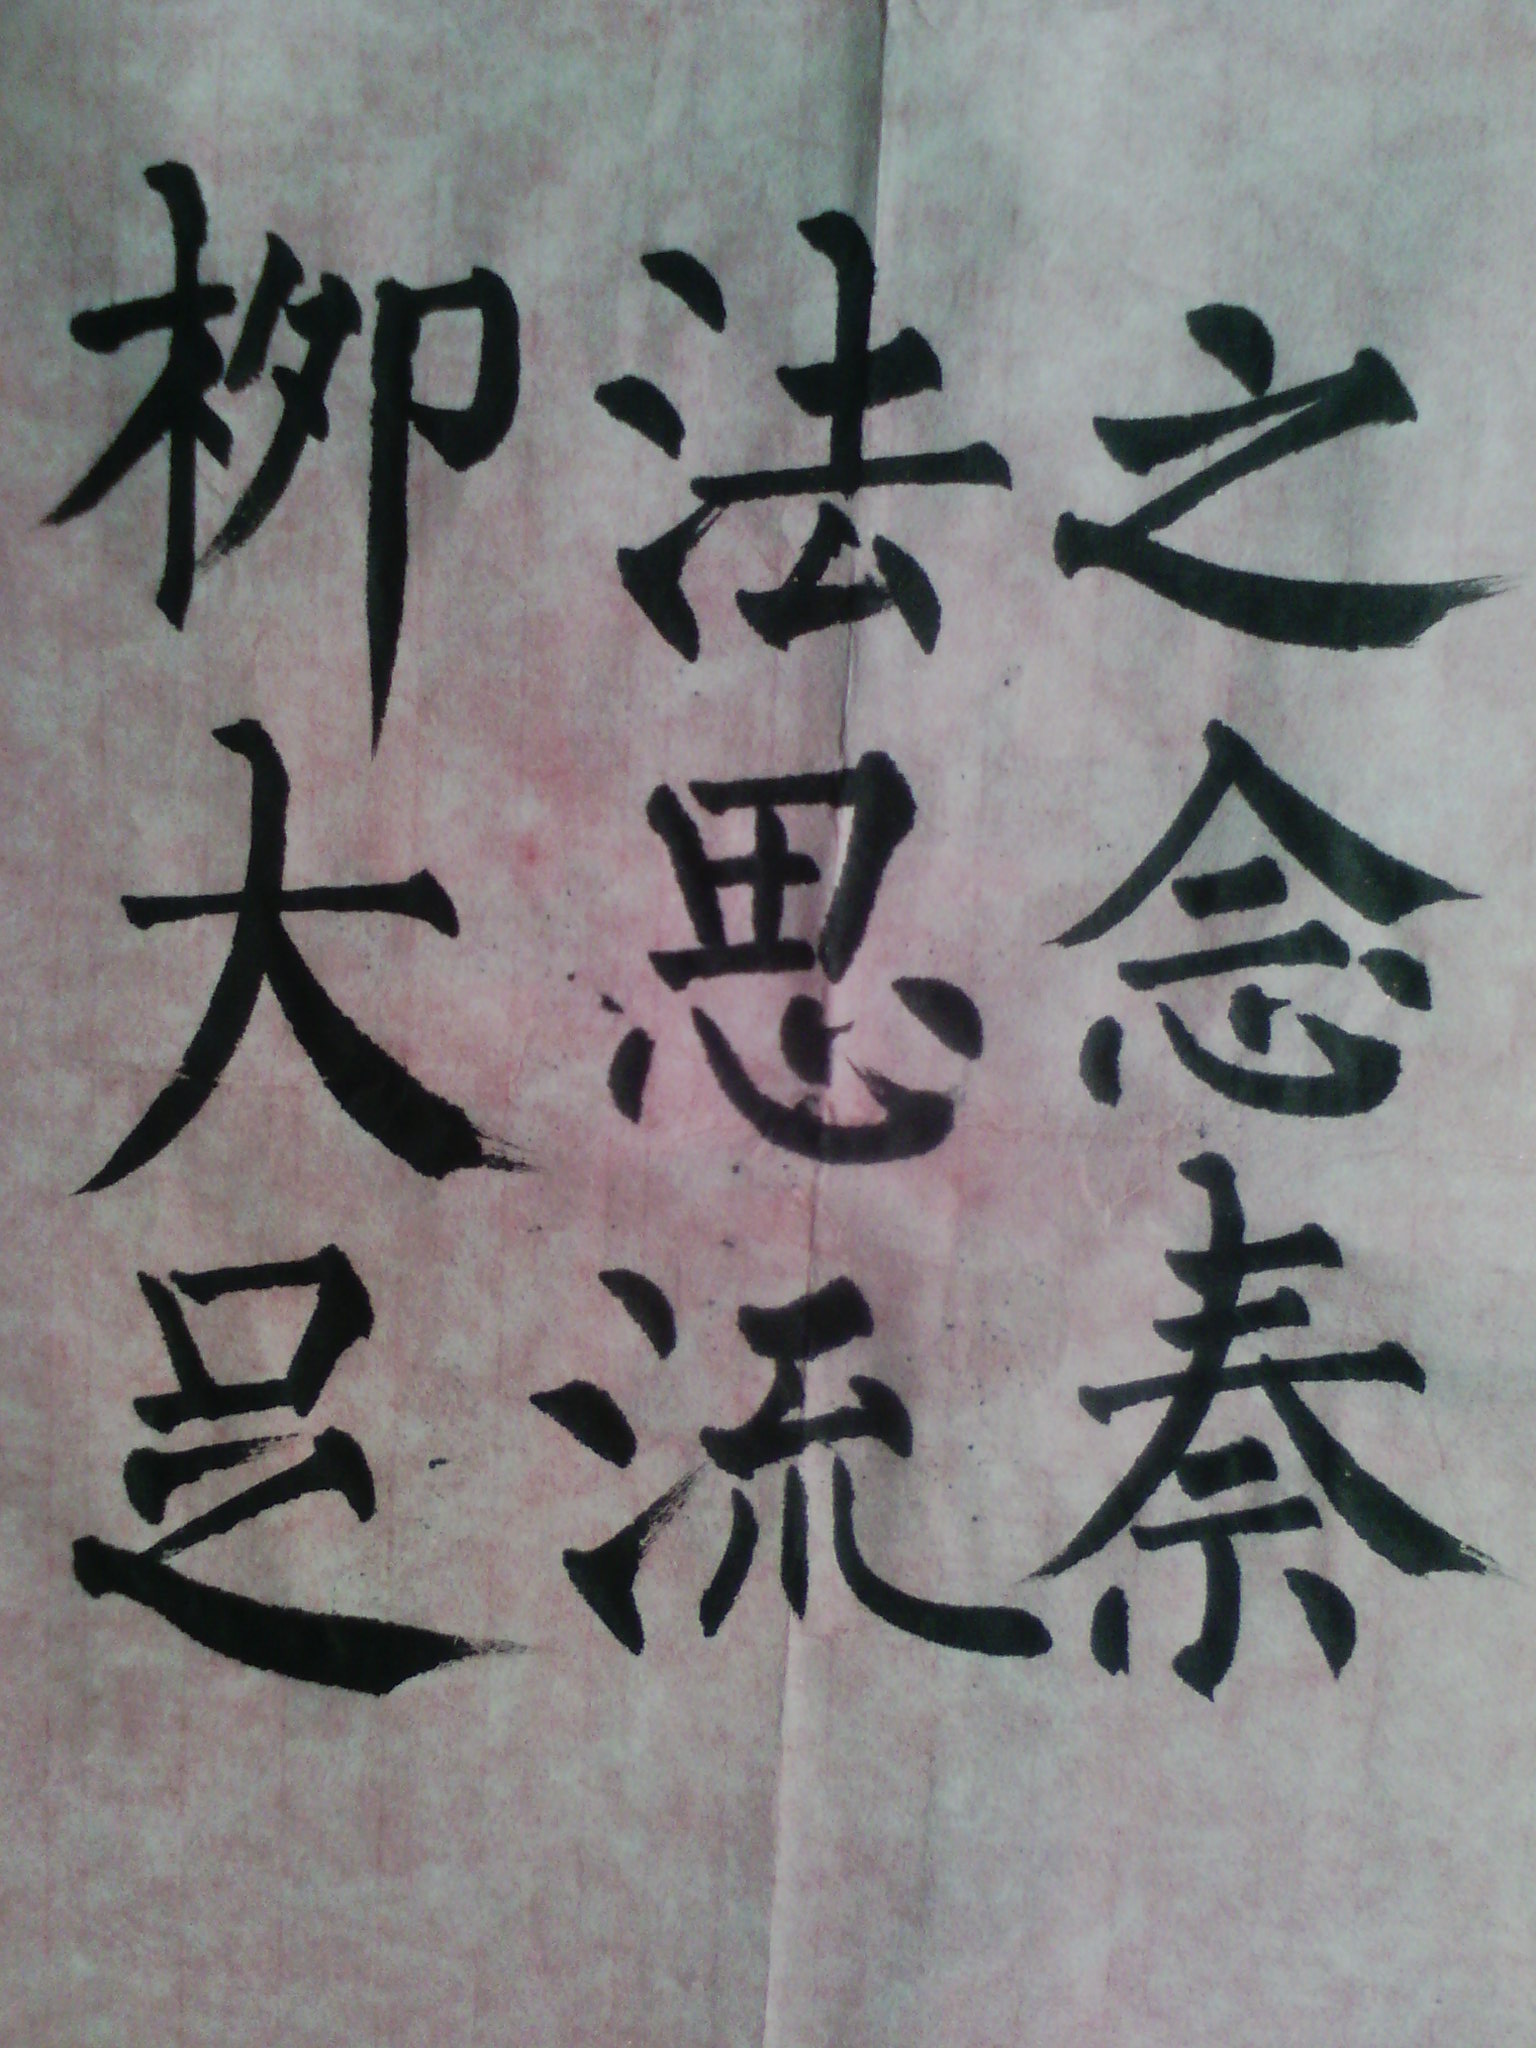 柳法之
大思念
足流